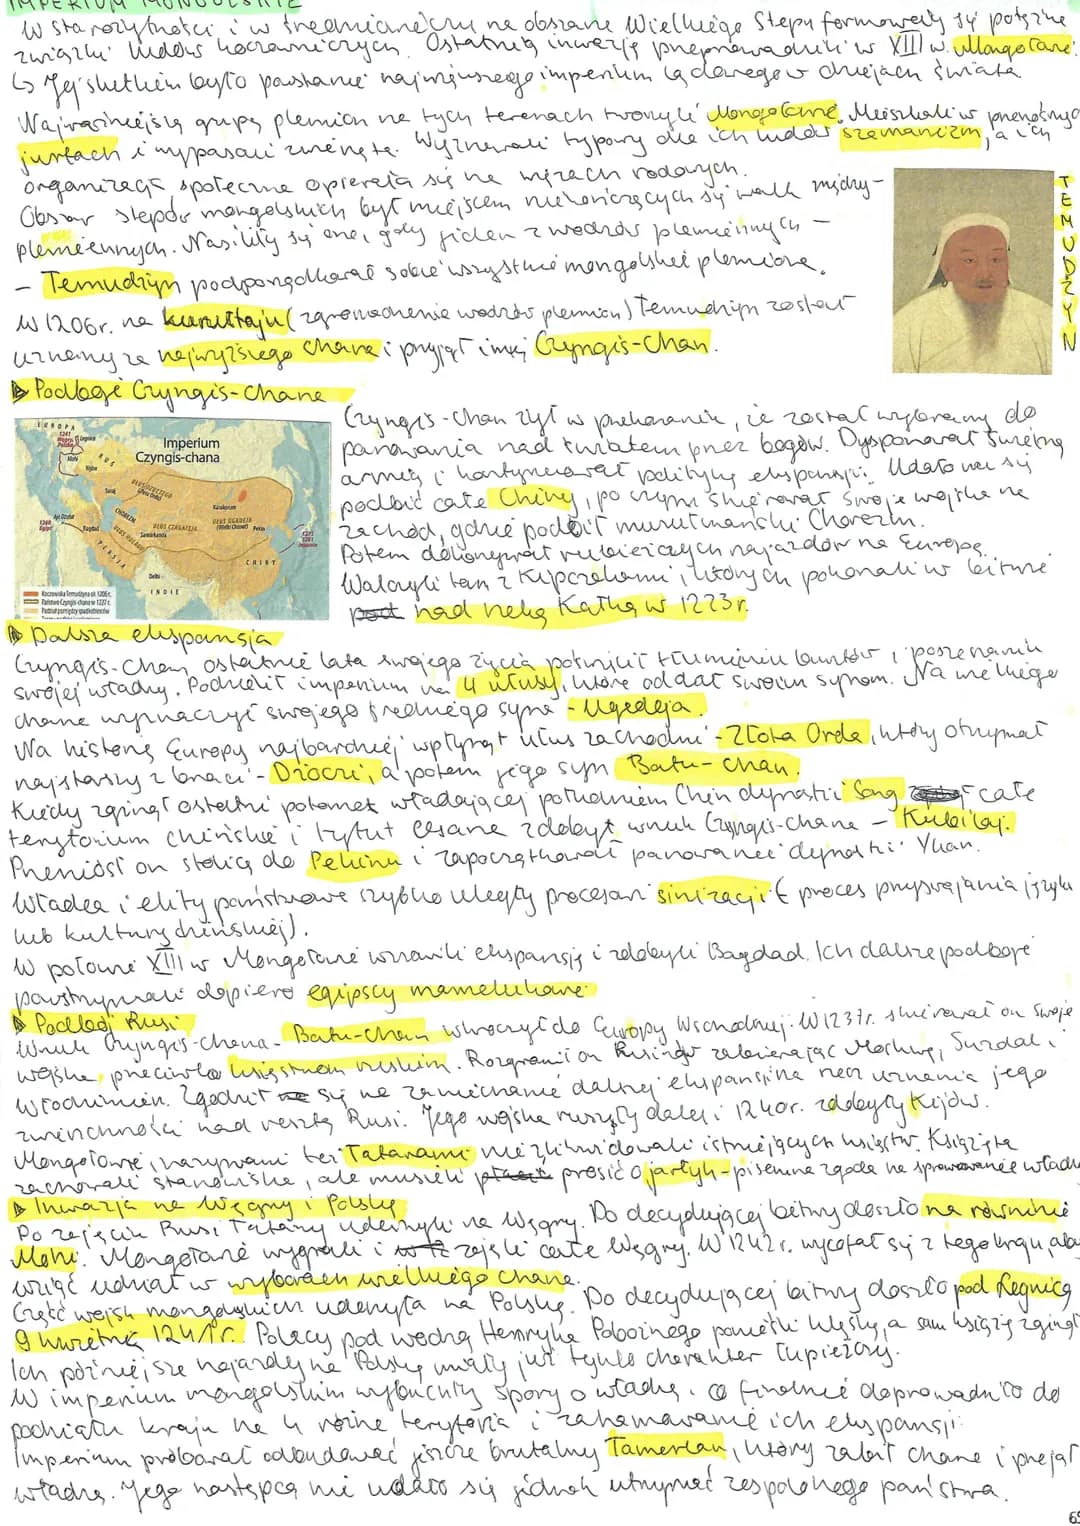 IMPERIUM MONGOLSKIE
W starożytności i w średniowieczu na obszarze Wielkiego Stepu formowały się potężne
związki ludów koczowniczych. Ostatnią inwazję przeprowadzili w XIII w. Mongołowie.
↳ Jej skutkiem było powstanie największego imperium lądowego w dziejach świata
Najważniejszą grupę plemion na tych terenach tworzyli Mongołowie. Mieszkali w przenośnych
jurtach i wypasali zwierzęta. Wyznawali typowy dla ich ludów szamanizm, a ich
organizacja społeczna opierała się na więzach rodowych.
Obszar stepów mongolskich był miejscem niekończących się walk między-
plemiennych. Nasiliły się one, gdy jeden z wodzów plemiennych -
- Temudżyn podporządkował sobie wszystkie mongolskie plemiona.
W 1206r. na kurułtaju (zgromadzenie wodzów plemion) Temudżyn został
uznany za najwyższego chana i przyjął imię Czyngis-Chan.
TEMUDŻYN
▷ Podboje Czyngis-chana
Imperium
Czyngis-chana
EUROPA
1241
Węgry,
Polska
Legnica
Mohi
Kijów
RUŚ
Saraj
UŁUS DŻOCZIEGO
(Złota Orda)
Karakorum
CHOREZM
UŁUS CZAGATAJA
UŁUS UGEDEJA
(Wielki Chanat)
Pekin
Ajn Dżalut
1260
Egipt
Bagdad
Samarkanda
UŁUS HULAGU
PERSJA
1273
1281
Japonia
CHINY
Delhi
INDIE
Koczowiska Temudżyna ok. 1206 r.
Państwo Czyngis-chana w 1227 r.
Podział pomiędzy spadkobierców
Czyngis-Chan żył w przekonaniu, że został wybrany do
panowania nad światem przez bogów. Dysponował świetną
armią i kontynuował politykę ekspansji. Udało mu się
podbić całe Chiny, po czym skierował swoje wojska na
zachód, gdzie podbił muzułmański Chorezm.
Potem dokonywał rubieżczych najazdów na Europę.
Walczyli tam z Kipczakami, których pokonali w bitwie
pod nad rzeką Kałką w 1223r.
▷ Dalsza ekspansja
Czyngis-Chan ostatnie lata swojego życia poświęcił tłumieniu buntów i poszerzaniu
swojej władzy. Podzielił imperium na 4 ułusy, które oddał swoim synom. Na wielkiego
chana wyznaczył swojego średniego syna - Ugedeja.
Na historię Europy najbardziej wpłynął ułus zachodni - Złota Orda, który otrzymał
najstarszy z braci - Dżoczi, a potem jego syn Batu-chan.
Kiedy zginął ostatni potomek władającej południem Chin dynastii Song całe
terytorium chińskie i tytuł cesarza zdobył wnuk Czyngis-chana - Kubiłaj.
Przeniósł on stolicę do Pekinu i zapoczątkował panowanie dynastii Yuan.
Władca i elity państwowe szybko uległy procesowi sinizacji (proces przyswajania języka
lub kultury chińskiej).
W połowie XIII w Mongołowie wznowili ekspansję i zdobyli Bagdad. Ich dalsze podboje
powstrzymali dopiero egipscy mamelukowie.
▷ Podbój Rusi
Wnuk Czyngis-chana - Batu-chan wkroczył do Europy Wschodniej. W 1237r. skierował on swoje
wojska przeciwko księstwom ruskim. Rozgromił on Rusinów zabierając Moskwę, Suzdal i
Włodzimierz. Zgodził się na zaniechanie dalszej ekspansji na rzecz uznania jego
zwierzchności nad resztą Rusi. Jego wojska ruszyły dalej i 1240r. zdobyły Kijów.
Mongołowie, nazywani też Tatarami nie zlikwidowali istniejących księstw. Książęta
zachowali stanowiska, ale musieli prosić o jarłyk - pisemna zgoda na sprawowanie władzy
▷ Inwazja na Węgry i Polskę
Po zajęciu Rusi Tatarzy uderzyli na Węgry. Do decydującej bitwy doszło na równinie
Mohi. Mongołowie wygrali i zajęli całe Węgry. W 1242r. wycofał się z tego kraju, aby
wziąć udział w wyborach wielkiego chana.
Część wojsk mongolskich uderzyła na Polskę. Do decydującej bitwy doszło pod Legnicą
9 kwietnia 1241r. Polacy pod wodzą Henryka Pobożnego ponieśli klęskę, a sam książę zginął
Ich późniejsze najazdy na Polskę miały już tylko charakter łupieżczy.
W imperium mongolskim wybuchły spory o władzę, co finalnie doprowadziło do
podziału kraju na 4 różne terytoria i zahamowanie ich ekspansji.
Imperium próbował odbudować jeszcze brutalny Tamerlan, który zabił chana i przejął
władzę. Jego następcą nie udało się jednak utrzymać zespolonego państwa.